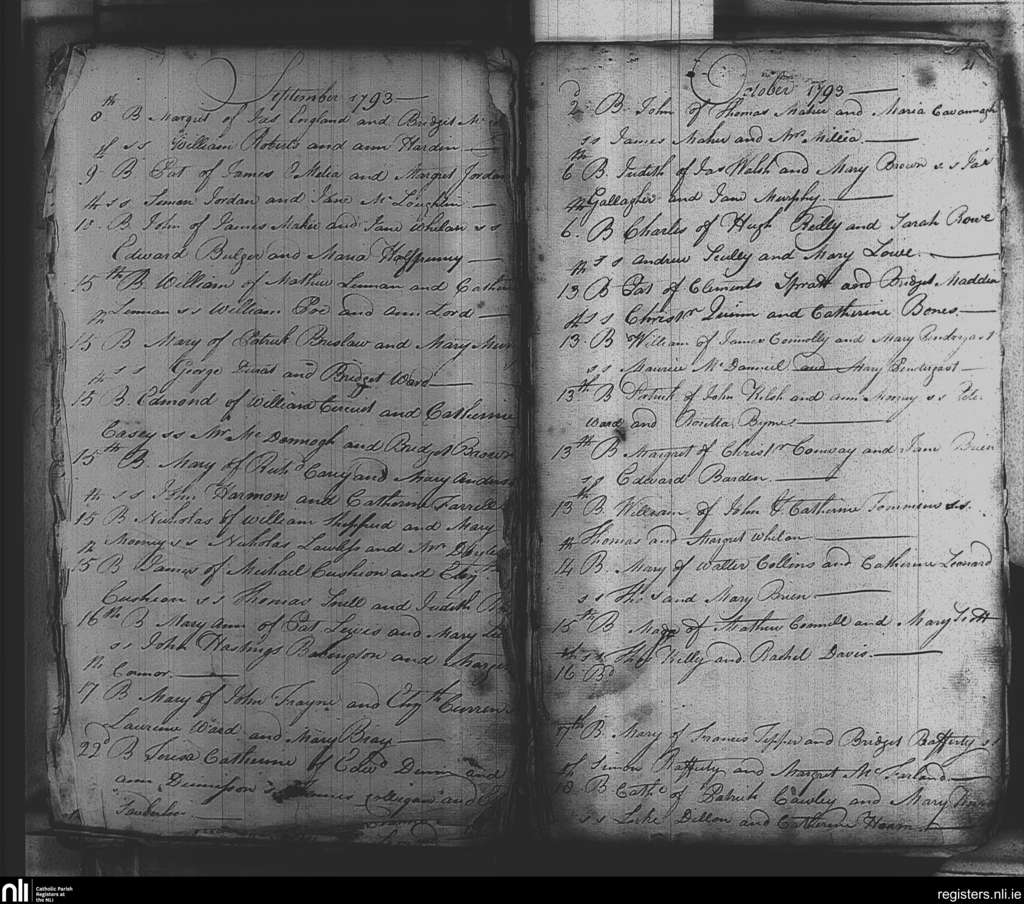 September 1793
8th B Margret of Jas England and Bridget Mc
ss William Roberts and ann Harden
9th B Pat of James Melia and Margret Jordan
ss Simon Jordan and Jane Mc Loughlin
10th B John of James Maher and Jane Whelan ss
Edward Bulger and Maria Halfpenny
15th B William of Mathew Linnan and Catherine
Linnan ss William Poe and ann Lord
15th B Mary of Patrick Breslaw and Mary
ss George and Bridget Ward
15th B. Edmond of William and Catherine
Casey ss Mr Mc Donnogh and Bridget Brown
15th B. Mary of Richd Carey and Mary
ss John Harmon and Catherine Farrell
15th B Nicholas of William Sheppard and Mary
Mooney ss Nicholas Lawless and Mrs Doyle
15th B James of Michael Cusheon and Elizth
Cusheon ss Thomas and Judith
16th B Mary ann of Pat Lewis and Mary
ss John Hastings Babington and Margret
Connor.
17th B Mary of John Trayne and Elizth Curren
Laurence Ward and Mary Bray
22d B Teresa Catherine of Edwd Dunn and
ann Dennisson ss James and
21
October 1793
2d B. John of Thomas Maher and Maria Cavannagh
ss James Maher and Mrs Millia.
6th B. Judith of Jas Walsh and Mary Brown ss Jas
Gallagher and Jane Murphy.
6th B Charles of Hugh Reilly and Sarah Rowe
ss andrew Scully and Mary Lowe.
13th B Pat of Clements Spratt and Bridget Madden
ss Christr Quinn and Catherine Bones.
13th B William of James Connolly and Mary Pendergast
ss Maurice Mc Daniel and Mary Pendergast
13th B Patrick of John Kelsh and ann Mooney ss Peter
Ward and Rosetta Byrne
13th B Margret of Christr Conway and Jane Brien
ss Edward Barden.
13th B. William of John & Catherine Tommins ss.
Thomas and Margret Whelan
14th B. Mary of Walter Collins and Catherine Leonard
ss Thos and Mary Brien
15th B Mary of Mathew Connell and Mary Scott
ss Thos Willy and Rachel Davis.
16th Bd
17th B. Mary of Francis Tepper and Bridget Rafferty ss
Simon Rafferty and Margret Mc Farland.
18th B Cathe of Patrick Cawley and Mary
ss Luke Dillon and Catherine
nli
Catholic Parish
Registers at
the NLI
registers.nli.ie